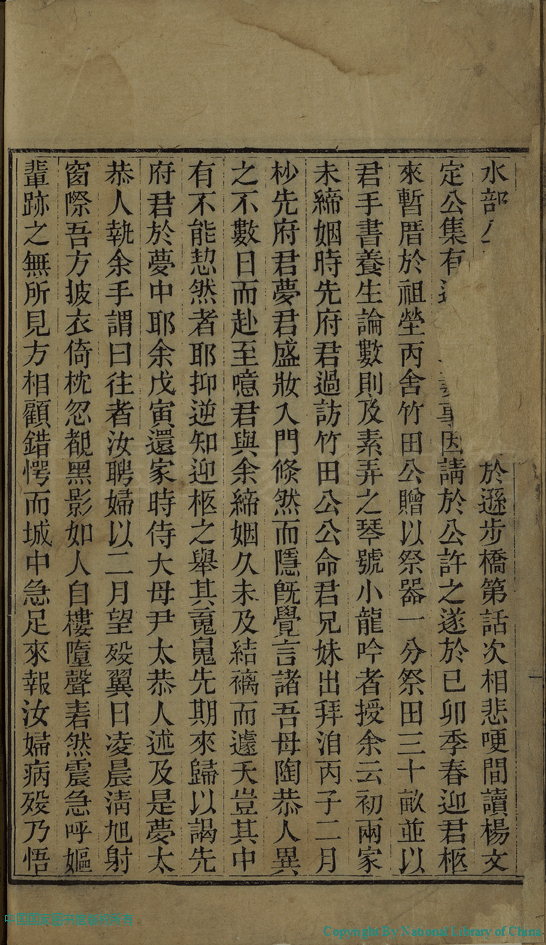 水部於遜步橋第話次相悲哽間讀楊文
定公集有事因請於公許之遂於己卯季春迎君柩
來暫厝於祖塋丙舍竹田公贈以祭器一分祭田三十畝並以
君手書養生論數則及素弄之琴號小龍吟者授余云初兩家
未締姻時先府君過訪竹田公公命君兄妹出拜洎丙子二月
杪先府君夢君盛妝入門倏然而隱旣覺言諸吾母陶恭人異
之不數日而赴至噫君與余締姻久未及結褵而遽夭豈其中
有不能恝然者耶抑逆知迎柩之舉其䰟先期來歸以謁先
府君於夢中耶余戊寅還家時侍大母尹太恭人述及是夢太
恭人執余手謂曰往者汝聘婦以二月望歿翼日凌晨淸旭射
窗際吾方披衣倚枕忽覩黑影如人自樓墮聲砉然震急呼嫗
輩跡之無所見方相顧錯愕而城中急足來報汝婦病歿乃悟
Copyright By National Library of China